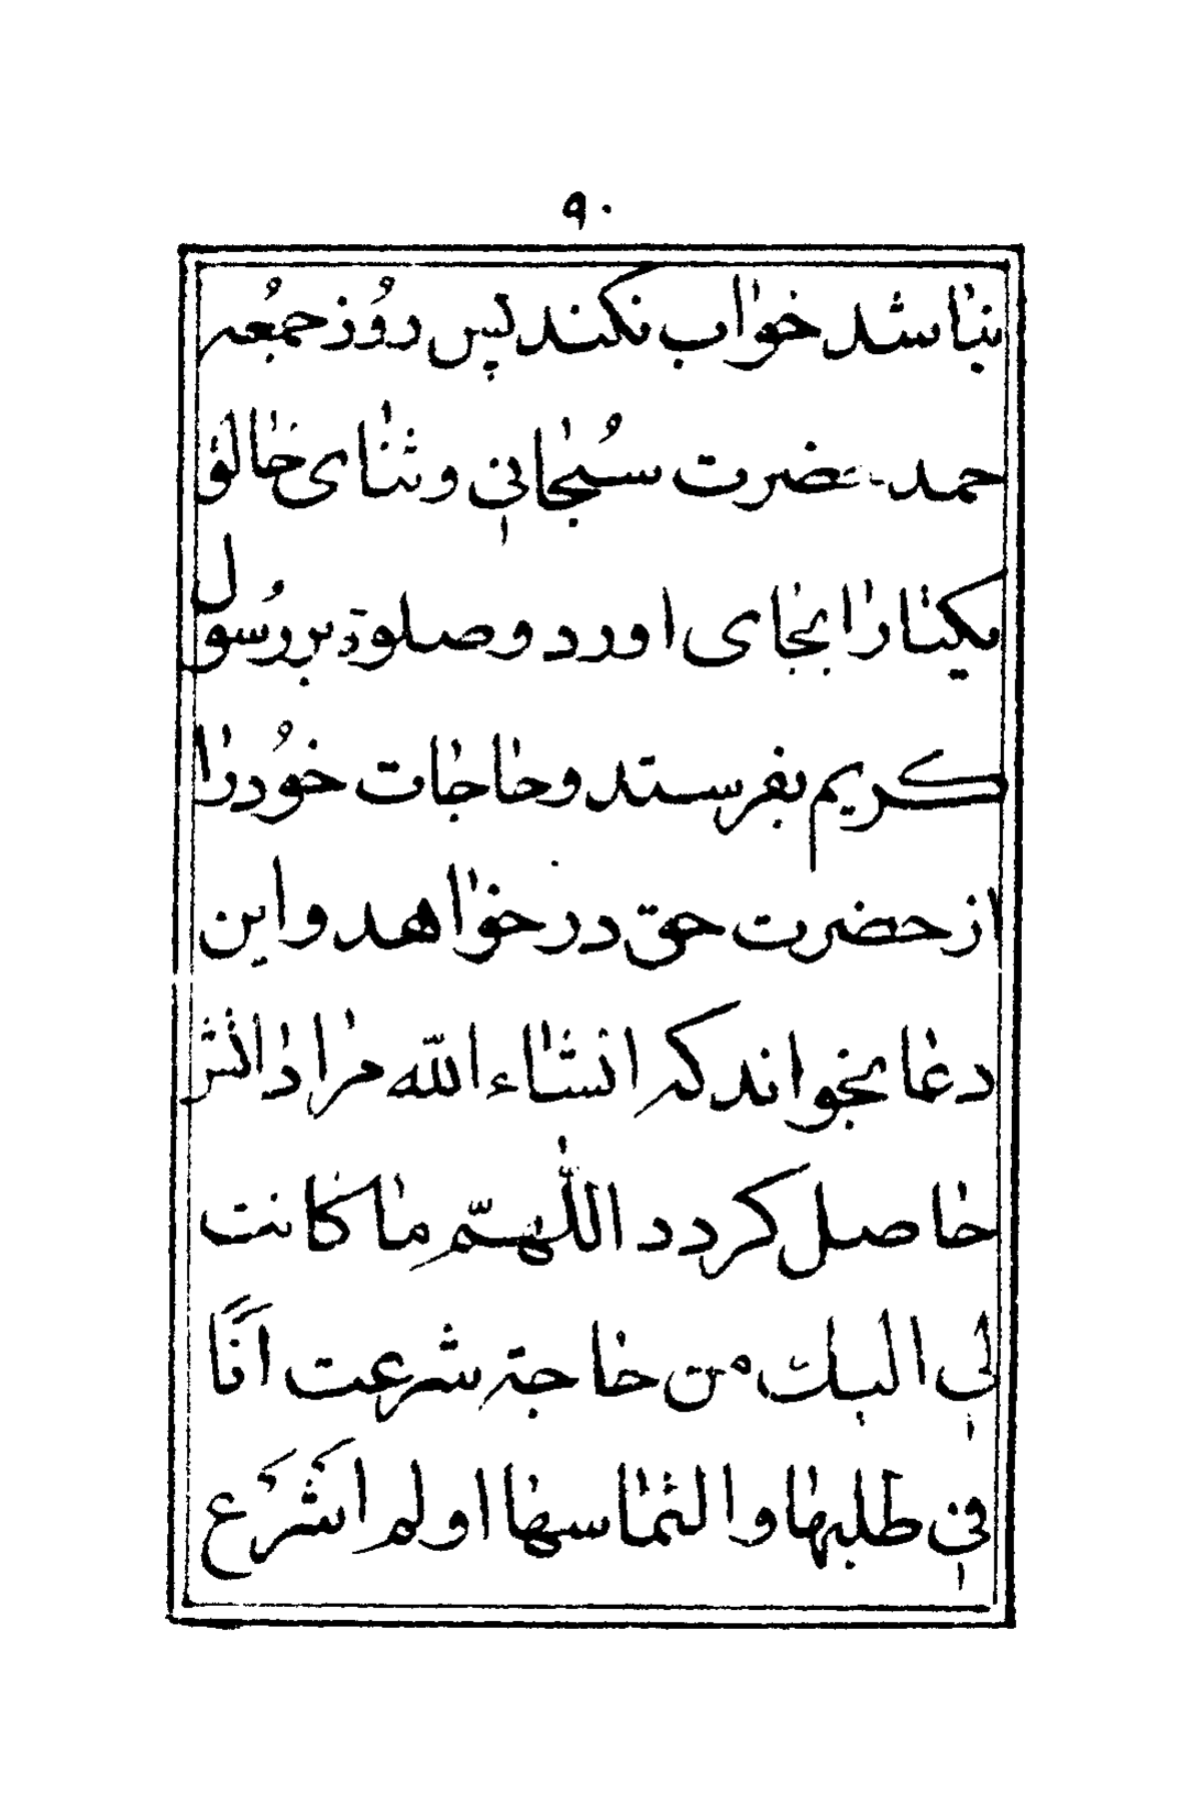 ۹۰
نباشد خواب نکند پس روُز جمعُه
حمد حضرت سُبحانی و ثنای خالق
یکتا را بجای اورد و صلوة بر رسُول
کریم بفرستد و حاجات خوُد را
از حضرت حق در خواهد و این
دعا بخواند که انشاء الله مراداتش
حاصل کردد اللهمّ ما کانت
لی الیک من حاجة شرعت انَا
فی طلبها و التماسها او لم اشَرَع